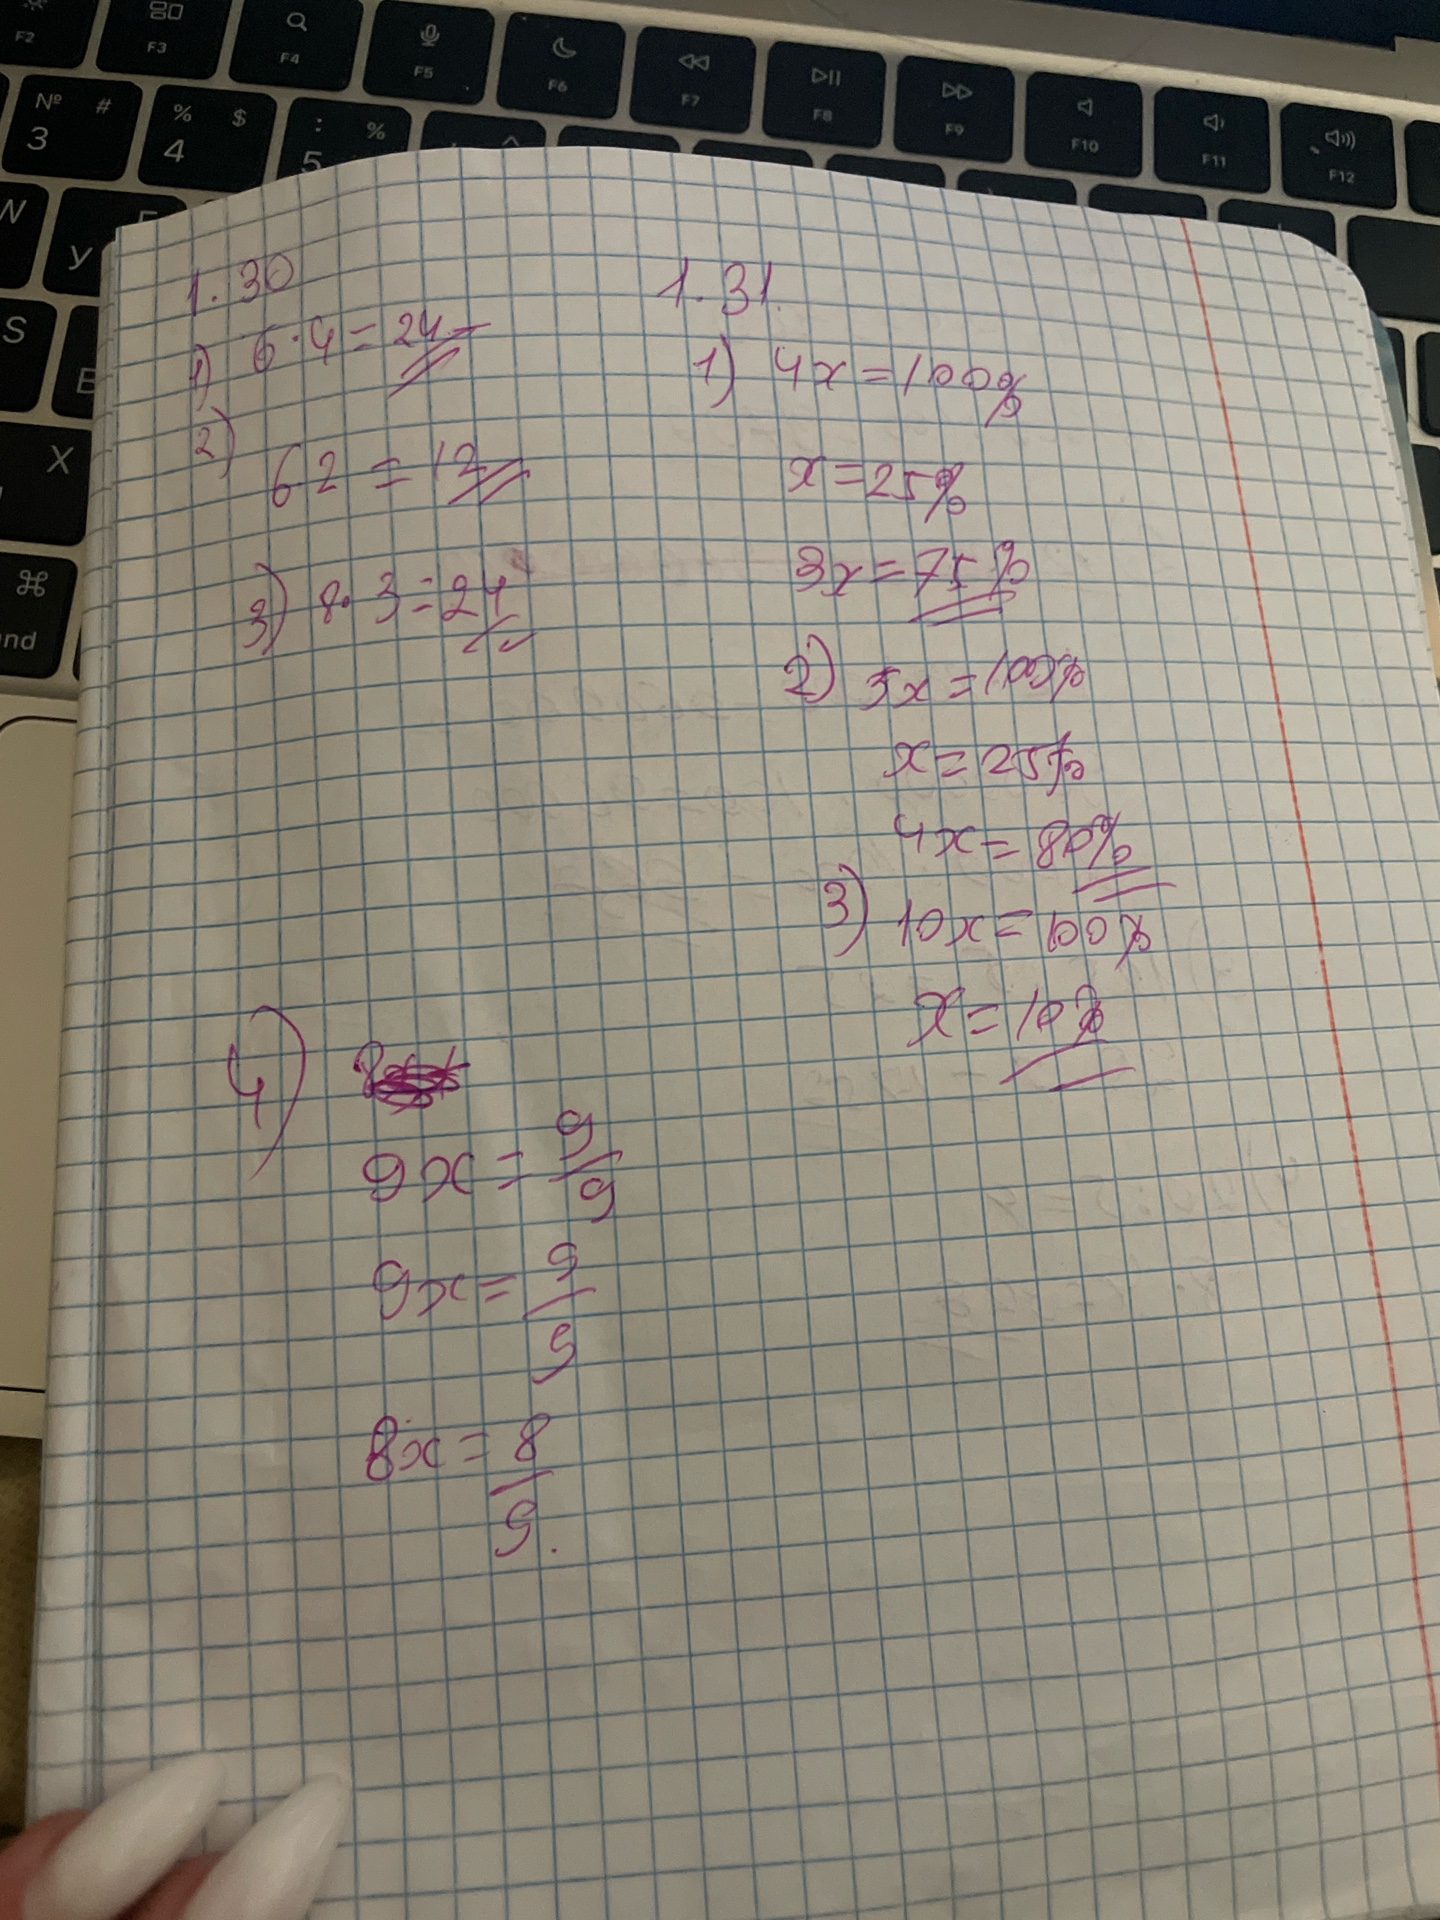 F2
F3
F4
F5
F6
F7
F8
F9
F10
F11
F12
№ #
3
% $
4
: %
5
W
У
S
X
⌘
nd
1.30
1) 6·4=24
2)
62=12
3) 8·3=24
4)
9x=9/9
9x=9/9
8x=8/9.
1.31.
1) 4x=100%
x=25%
3x=75%
2) 5x=100%
x=25%
4x=80%
3) 10x=100%
x=10%